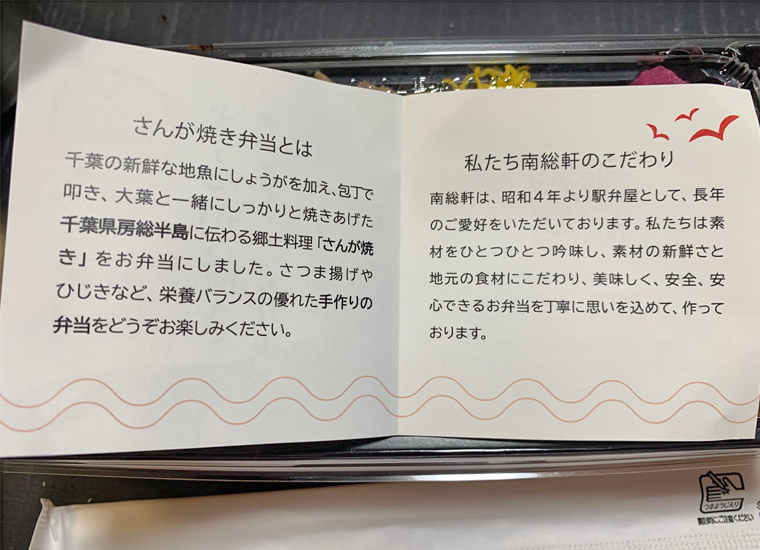 さんが焼き弁当とは
千葉の新鮮な地魚にしょうがを加え、包丁で
叩き、大葉と一緒にしっかりと焼きあげた
千葉県房総半島に伝わる郷土料理「さんが焼
き」をお弁当にしました。さつま揚げや
ひじきなど、栄養バランスの優れた手作りの
弁当をどうぞお楽しみください。
私たち南総軒のこだわり
南総軒は、昭和4年より駅弁屋として、長年
のご愛好をいただいております。私たちは素
材をひとつひとつ吟味し、素材の新鮮さと
地元の食材にこだわり、美味しく、安全、安
心できるお弁当を丁寧に思いを込めて、作って
おります。
つまようじ入り
開封時にご注意ください